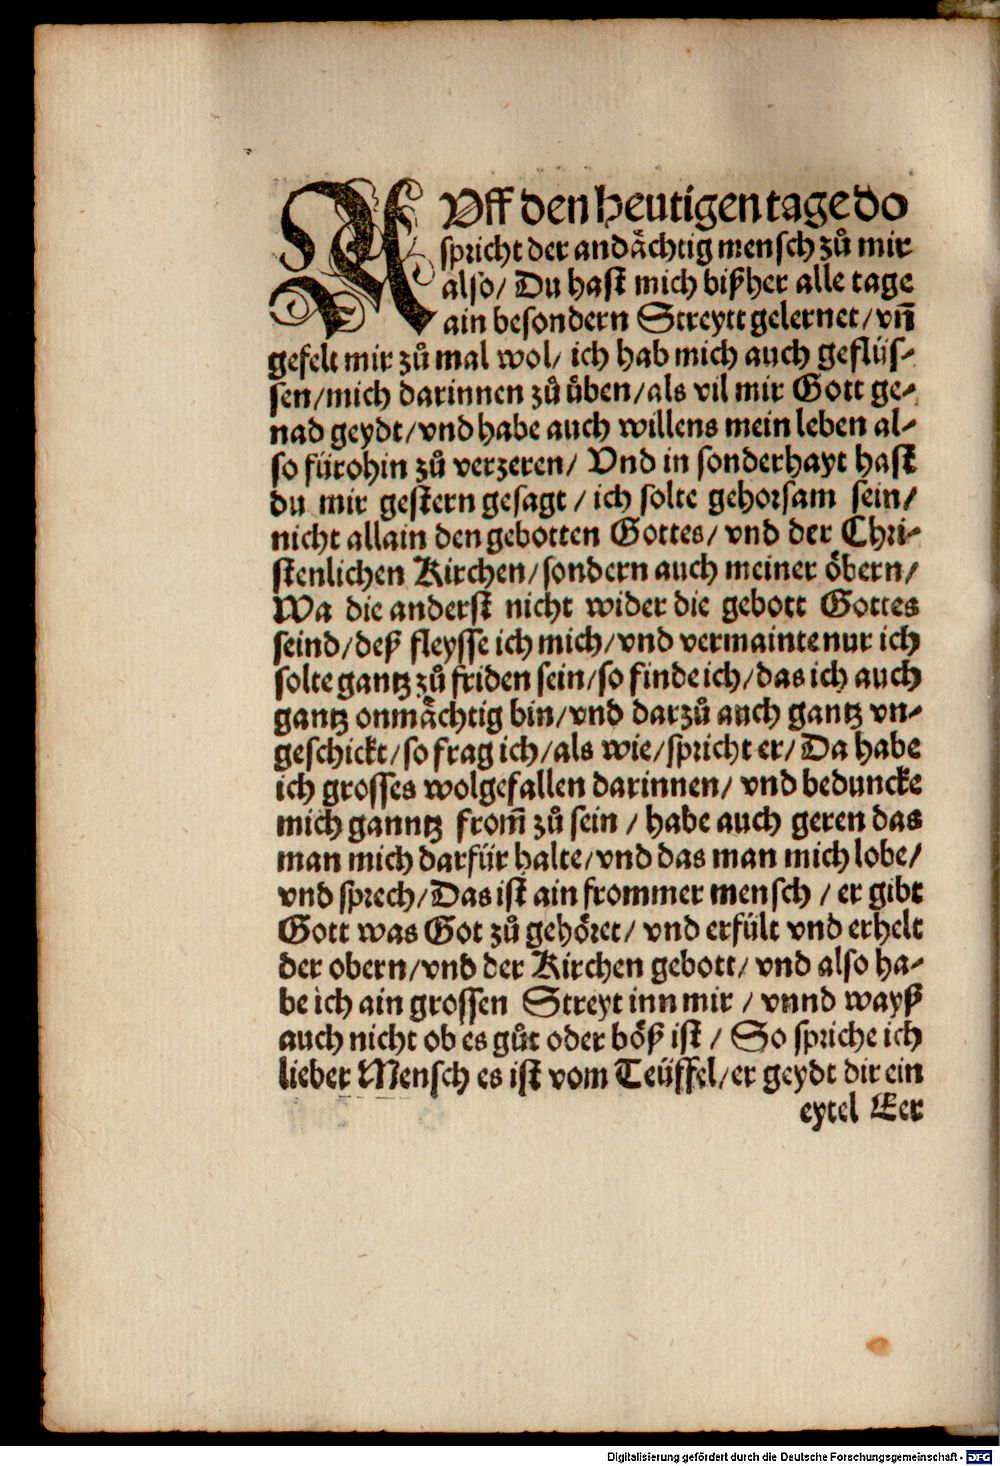 AVff den heutigen tage do
spricht der andächtig mensch zů mir
also/ Du hast mich bißher alle tage
ain besondern Streytt gelernet/ vn̄
gefelt mir zů mal wol/ ich hab mich auch geflüs-
sen/mich darinnen zů üben/als vil mir Gott ge-
nad geydt/vnd habe auch willens mein leben al-
so fürohin zů verzeren/ Vnd in sonderhayt hast
du mir gestern gesagt / ich solte gehorsam sein/
nicht allain den gebotten Gottes/ vnd der Chri-
stenlichen Kirchen/sondern auch meiner öbern/
Wa die anderst nicht wider die gebott Gottes
seind/deß fleysse ich mich/vnd vermainte nur ich
solte gantz zů friden sein/so finde ich/das ich auch
gantz onmächtig bin/vnd darzů auch gantz vn-
geschickt/so frag ich/als wie/spricht er/ Da habe
ich grosses wolgefallen darinnen/ vnd beduncke
mich ganntz from̄ zů sein / habe auch geren das
man mich darfür halte/vnd das man mich lobe/
vnd sprech/Das ist ain frommer mensch / er gibt
Gott was Got zů gehöret/ vnd erfült vnd erhelt
der obern/vnd der Kirchen gebott/ vnd also ha-
be ich ain grossen Streyt inn mir / vnnd wayß
auch nicht ob es gůt oder böß ist / So spriche ich
lieber Mensch es ist vom Teüffel/er geydt dir ein
eytel Eer
Digitalisierung gefördert durch die Deutsche Forschungsgemeinschaft - DFG